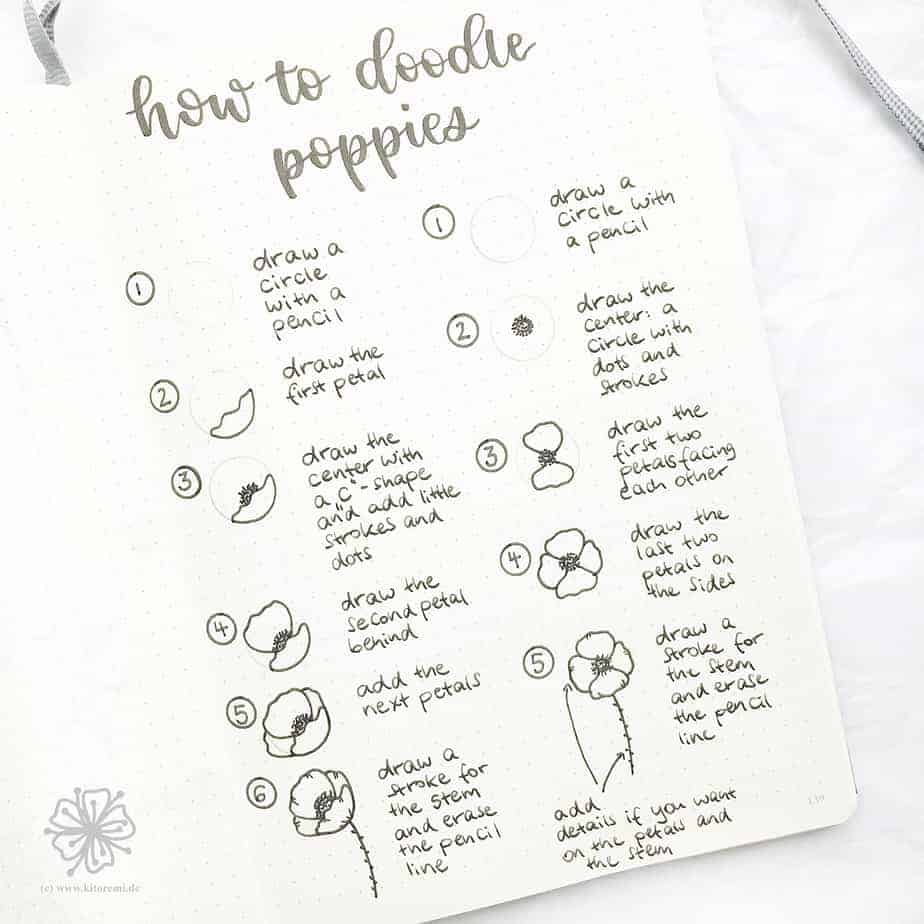 how to doodle
poppies
1
draw a
circle
with a
pencil
2
draw the
first petal
3
draw the
center with
a „C“-shape
and add little
strokes and
dots
4
draw the
second petal
behind
5
add the
next petals
6
draw a
stroke for
the stem
and erase
the pencil
line
1
draw a
circle with
a pencil
2
draw the
center: a
circle with
dots and
strokes
3
draw the
first two
petals facing
each other
4
draw the
last two
petals on
the sides
5
draw a
stroke for
the stem
and erase
the pencil
line
add
details if you want
on the petals and
the stem
(c) www.kitoremi.de